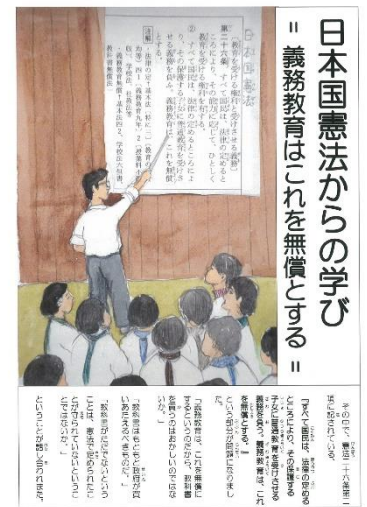 日本国憲法からの学び
＝ 義務教育はこれを無償とする ＝
日本国憲法
(教育を受ける権利と受けさせる義務)
第二十六条 すべて国民は、法律の定める
ところにより、その能力に応じて、ひとしく
教育を受ける権利を有する。
② すべて国民は、法律の定めるところによ
り、その保護する子女に普通教育を受けさ
せる義務を負ふ。義務教育は、これを無償
とする。
その中で、憲法二十六条第二
項に記されている、
「すべて国民は、法律の定める
ところにより、その保護する
子女に普通教育を受けさせる
義務を負う。義務教育は、これ
を無償とする。」
という部分が問題になりまし
た。
「義務教育は、これを無償に
するというのだから、教科書
を買うのはおかしいのではな
いか。」
「教科書はもともと政府が買
いあたえるべきものだ。」
「教科書がただでないという
ことは、憲法で定められたこ
とが守られていないというこ
とではないか。」
ということが話し合われました。